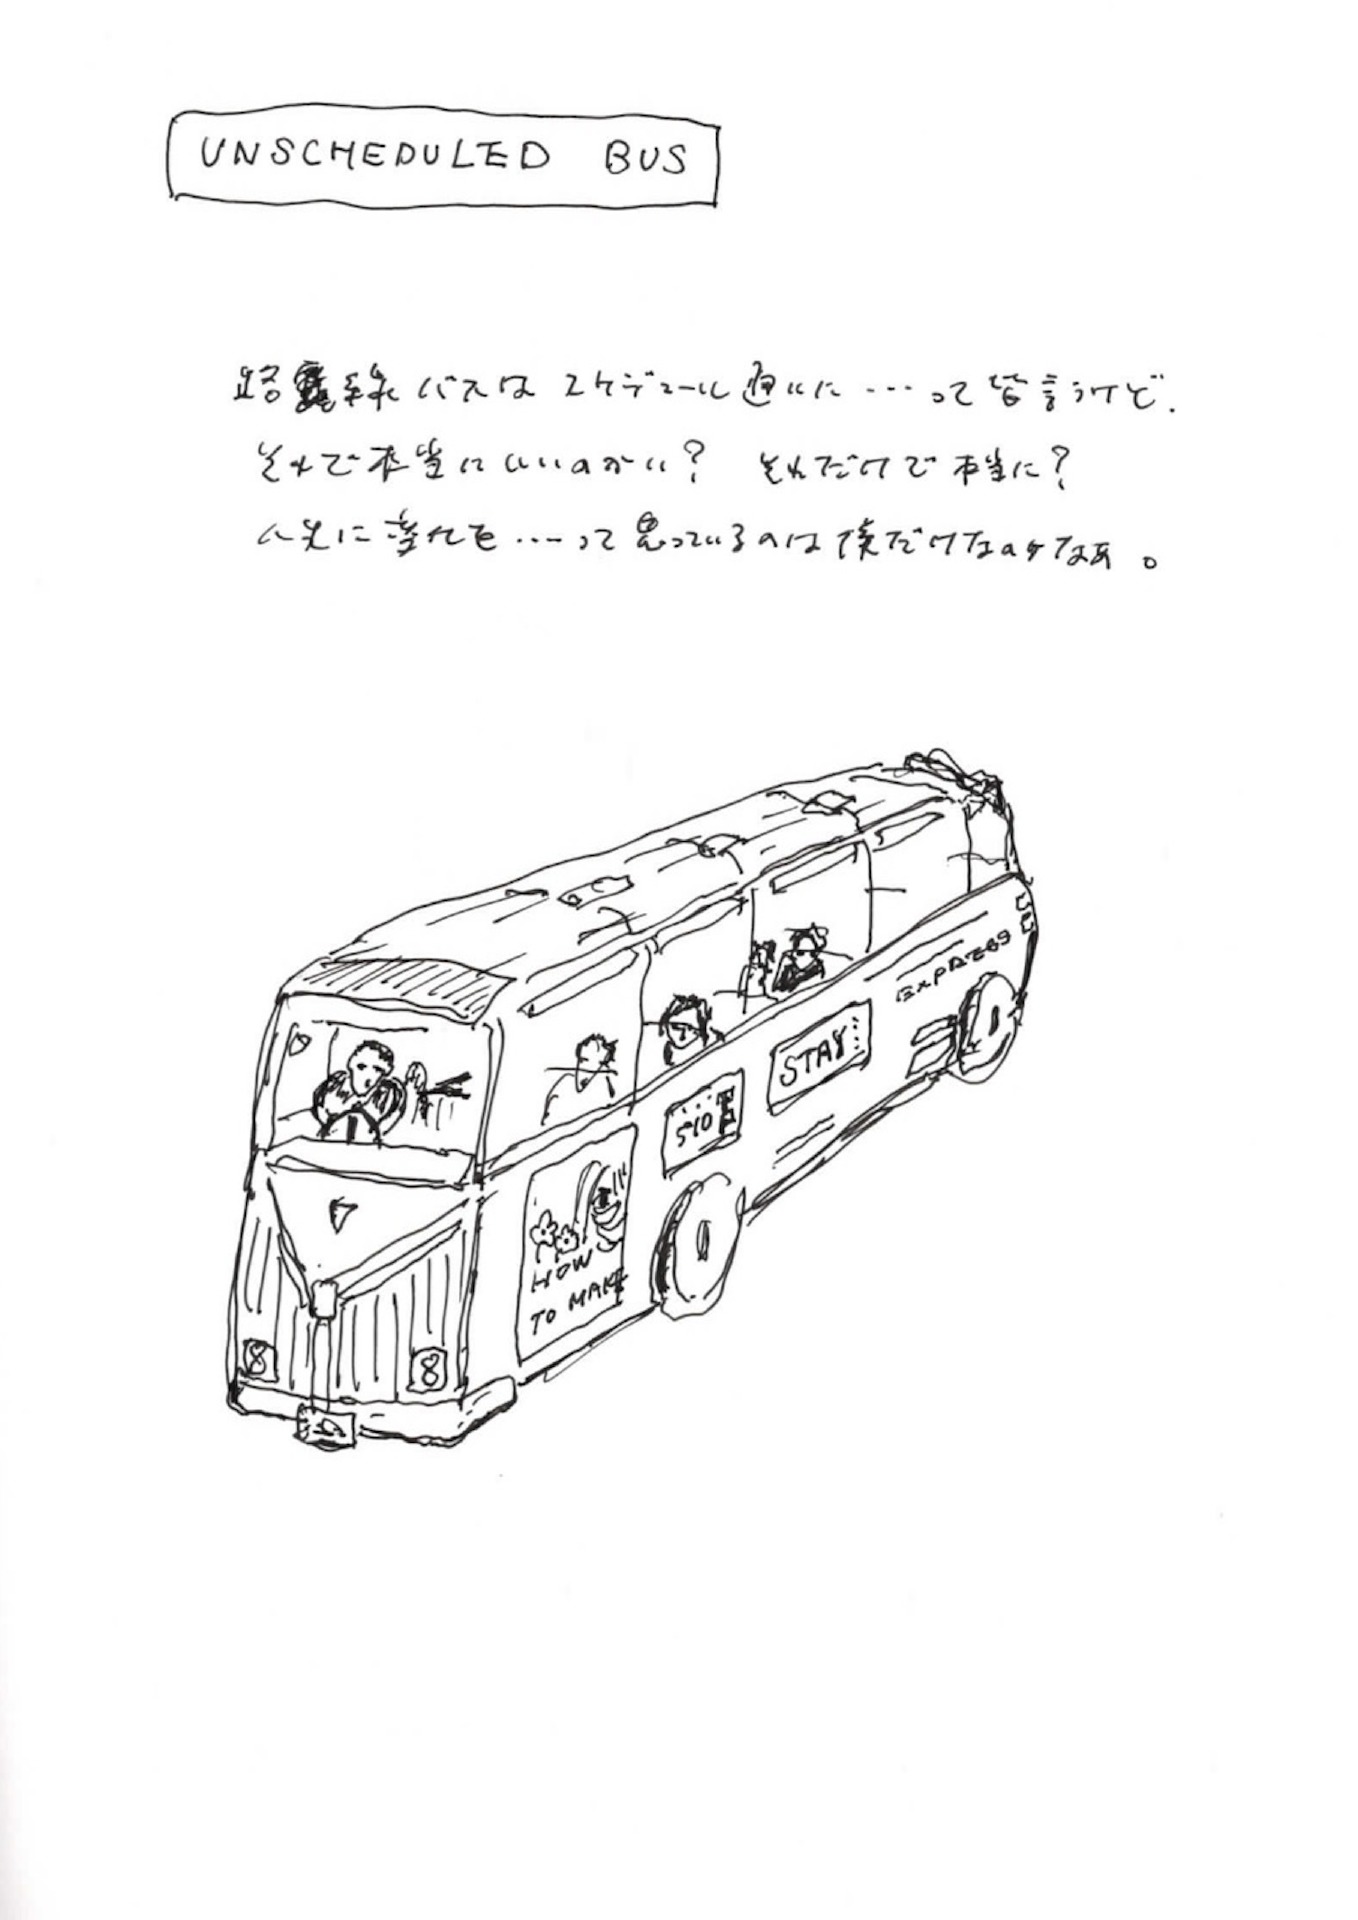 UNSCHEDULED BUS
路線バスはスケジュール通りに・・・って皆言うけど.
それで本当にいいのかい? それだけで本当に?
人生に変化を・・・・って思っているのは僕だけなのかなあ。
EXPRESS
STAY
HOW
TO MAKE
8
8